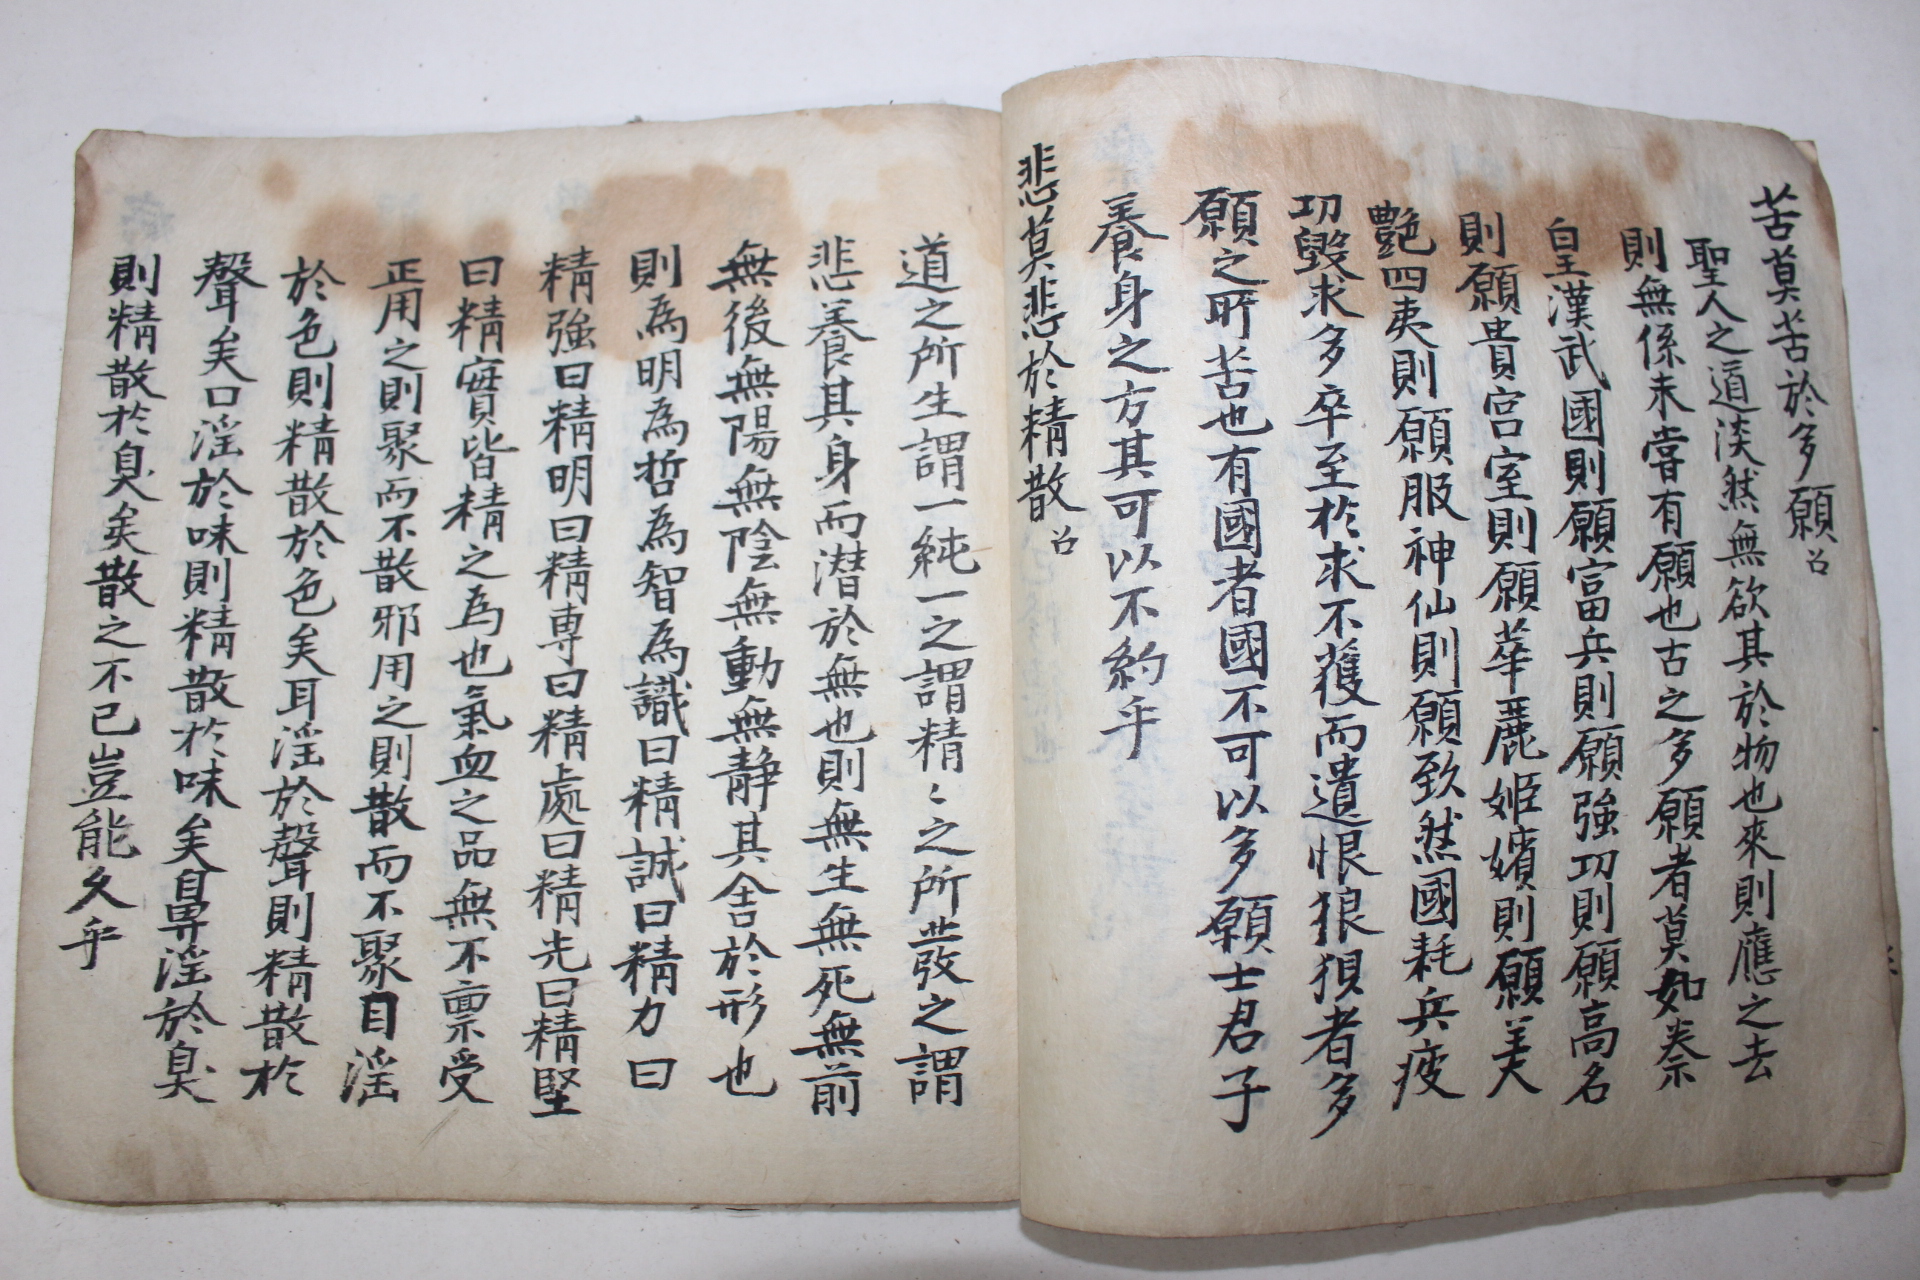 苦莫苦於多願 召
聖人之道淡然無欲其於物也來則應之去
則無係未嘗有願也古之多願者莫如秦
皇漢武國則願富兵則願強功則願高名
則願貴宮室則願華麗姬嬪則願美
艶四夷則願服神仙則願致然國耗兵疲
功毀求多卒至於求不獲而遺恨狼狽者多
願之所苦也有國者國不可以多願士君子
養身之方其可以不約乎
悲莫悲於精散 召
道之所生謂一純一之謂精〻之所發之謂
悲養其身而潛於無也則無生無死無前
無後無陽無陰無動無靜其舍於形也
則為明為哲為智為識曰精誠曰精力曰
精強曰精明曰精専曰精處曰精光曰精堅
曰精實皆精之為也氣血之品無不禀受
正用之則聚而不散邪用之則散而不聚目淫
於色則精散於色矣耳淫於聲則精散於
聲矣口淫於味則精散於味矣鼻淫於臭
則精散於臭矣散之不已豈能久乎